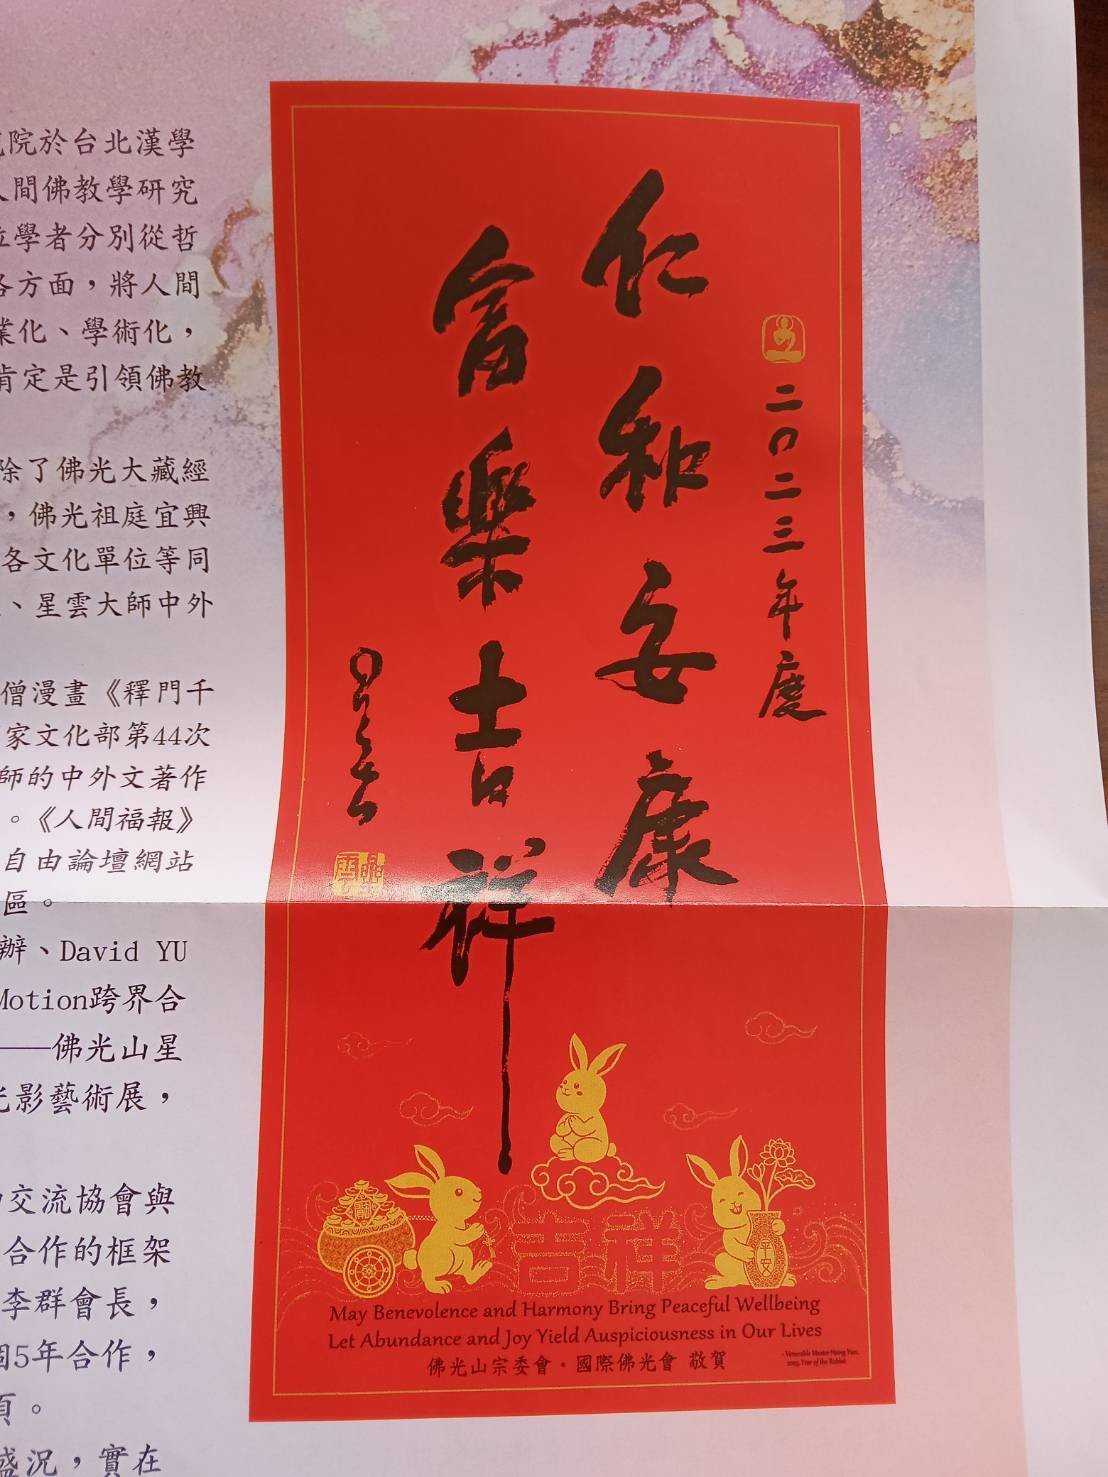 院於台北漢學
人間佛教學研究
位學者分別從哲
各方面，將人間
業化、學術化，
肯定是引領佛教
除了佛光大藏經
，佛光祖庭宜興
各文化單位等同
、星雲大師中外
僧漫畫《釋門千
家文化部第44次
師的中外文著作
。《人間福報》
自由論壇網站
區。
辦、David YU
Motion跨界合
——佛光山星
光影藝術展，
交流協會與
合作的框架
李群會長，
5年合作，
。
盛況，實在
二〇二三年度
仁和安康
富樂吉祥
星雲
星雲
吉祥
平安
May Benevolence and Harmony Bring Peaceful Wellbeing
Let Abundance and Joy Yield Auspiciousness in Our Lives
- Venerable Master Hsing Yun,
2023, Year of the Rabbit
佛光山宗委會・國際佛光會 敬賀